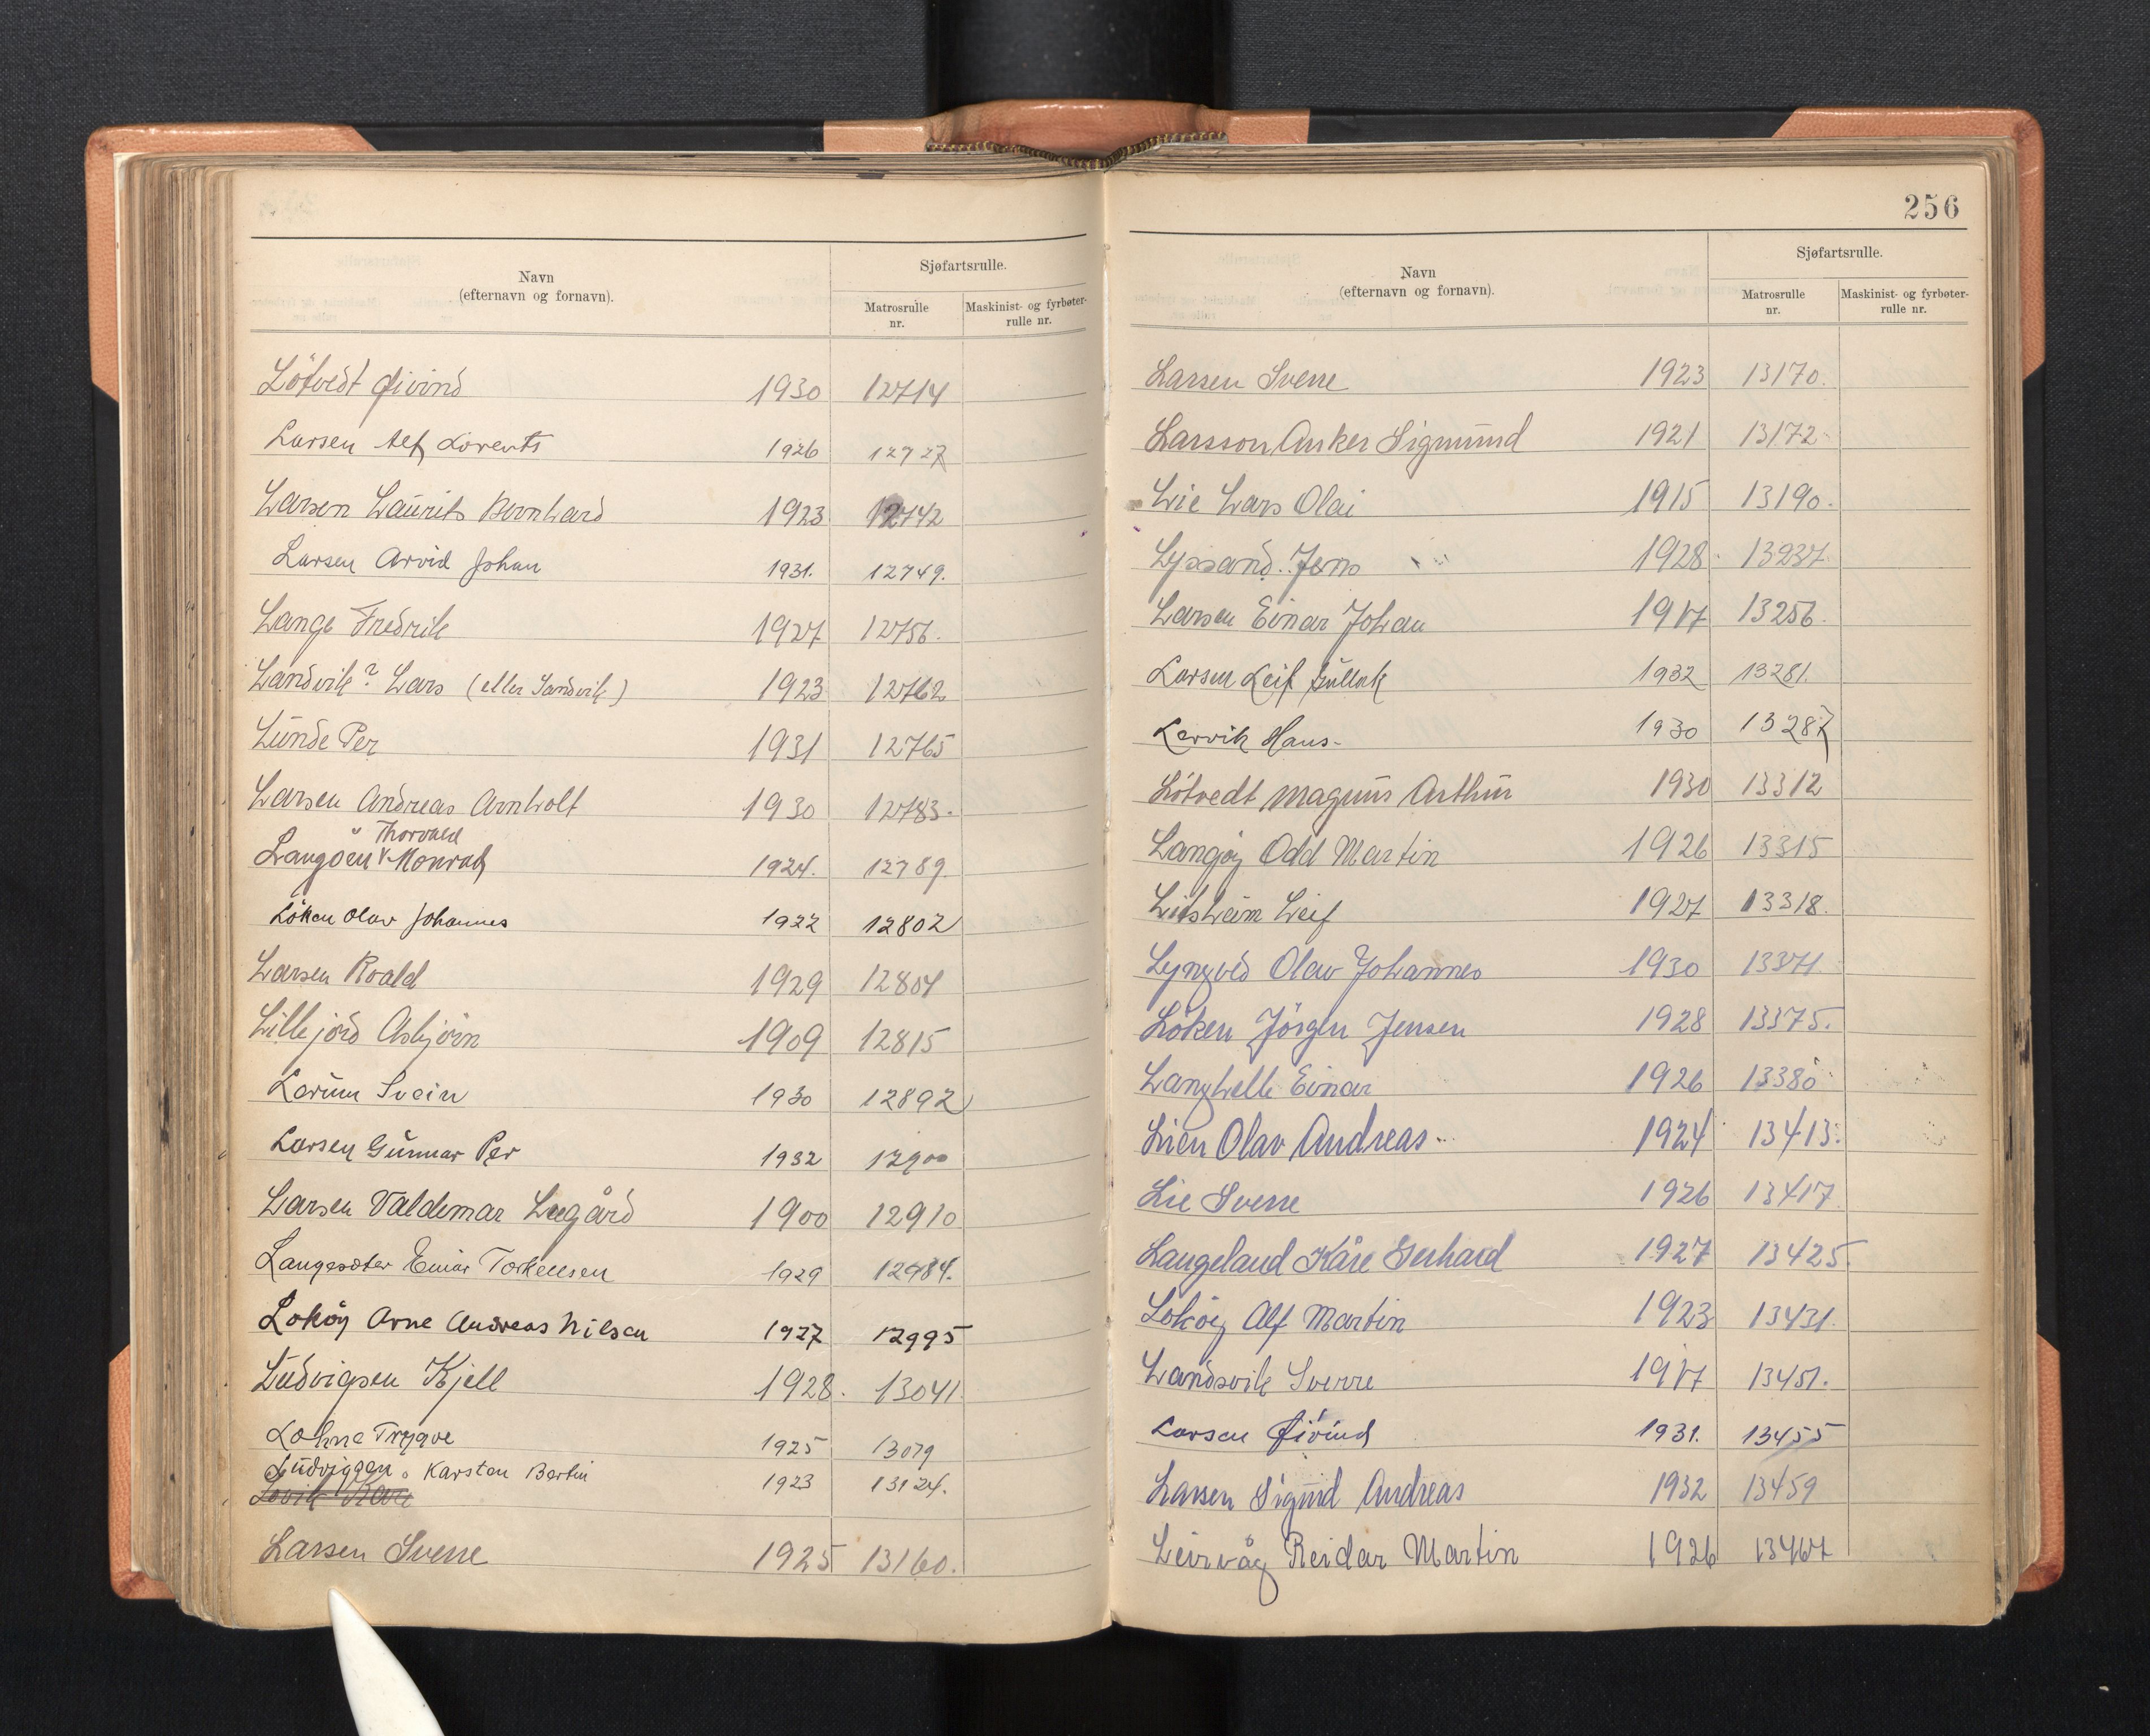 Navn
(efternavn og fornavn).
Sjøfartsrulle.
Matrosrulle
nr.
Maskinist- og fyrbøter-
rulle nr.
Lötvedt Øivind 1930 12714
Larsen Alf Lorents 1926 12727
Larsen Laurits Bernhard 1923 12742
Larsen Arvid Johan 1931. 12749.
Lange Fredrik 1927 12756.
Landvik? Lars (eller Sandvik) 1923 12762
Lunde Per 1931 12765
Larsen Andreas Arnholt 1930 12783.
Thorvald
Langöen Monrad 1924. 12789
Löken Olav Johannes 1922 12802
Larsen Roald 1929 12804
Lillejord Asbjörn 1909 12815
Lerum Svein 1930 12892
Larsen Gunnar Per 1932 12900
Larsen Valdemar Legård 1900 12910
Langesæter Einar Torkelsen 1929 12984.
Loköy Arne Andreas Nilsen 1927 12995
Ludvigsen Kjell 1928. 13041
Lohne Trygve 1925 13079
Ludviggen. Karsten Bertin 1923 13124.
Lovik Kåre
Larsen Sverre 1925 13160.
256
Navn
(efternavn og fornavn).
Sjøfartsrulle.
Matrosrulle
nr.
Maskinist- og fyrbøter-
rulle nr.
Larsen Sverre 1923 13170.
Larsson Anker Sigmund 1921 13172
Lie Lars Olai 1915 13190.
Lyssand. Jens 1928. 13237
Larsen Einar Johan 1917 13256.
Larsen Leif Gullak 1932 13281.
Lervik Hans- 1930 13287
Lötvedt Magnus Arthur 1930 13312
Langöy Odd Martin 1926 13315
Litsheim Leif 1927 13318.
Lyngved Olav Johannes 1930 13371
Löken Jörgen Jensen 1928 13375.
Langhelle Einar 1926 13380
Lien Olav Andreas 1924 13413.
Lie Sverre 1926 13417
Langeland Kåre Gerhard 1927 13425.
Loköy Alf Martin 1923 13431.
Landsvik Sverre 1917 13451.
Larsen Øivind 1931. 13455
Larsen Sigurd Andreas 1932 13459
Leirvåg Reidar Martin 1926 13467